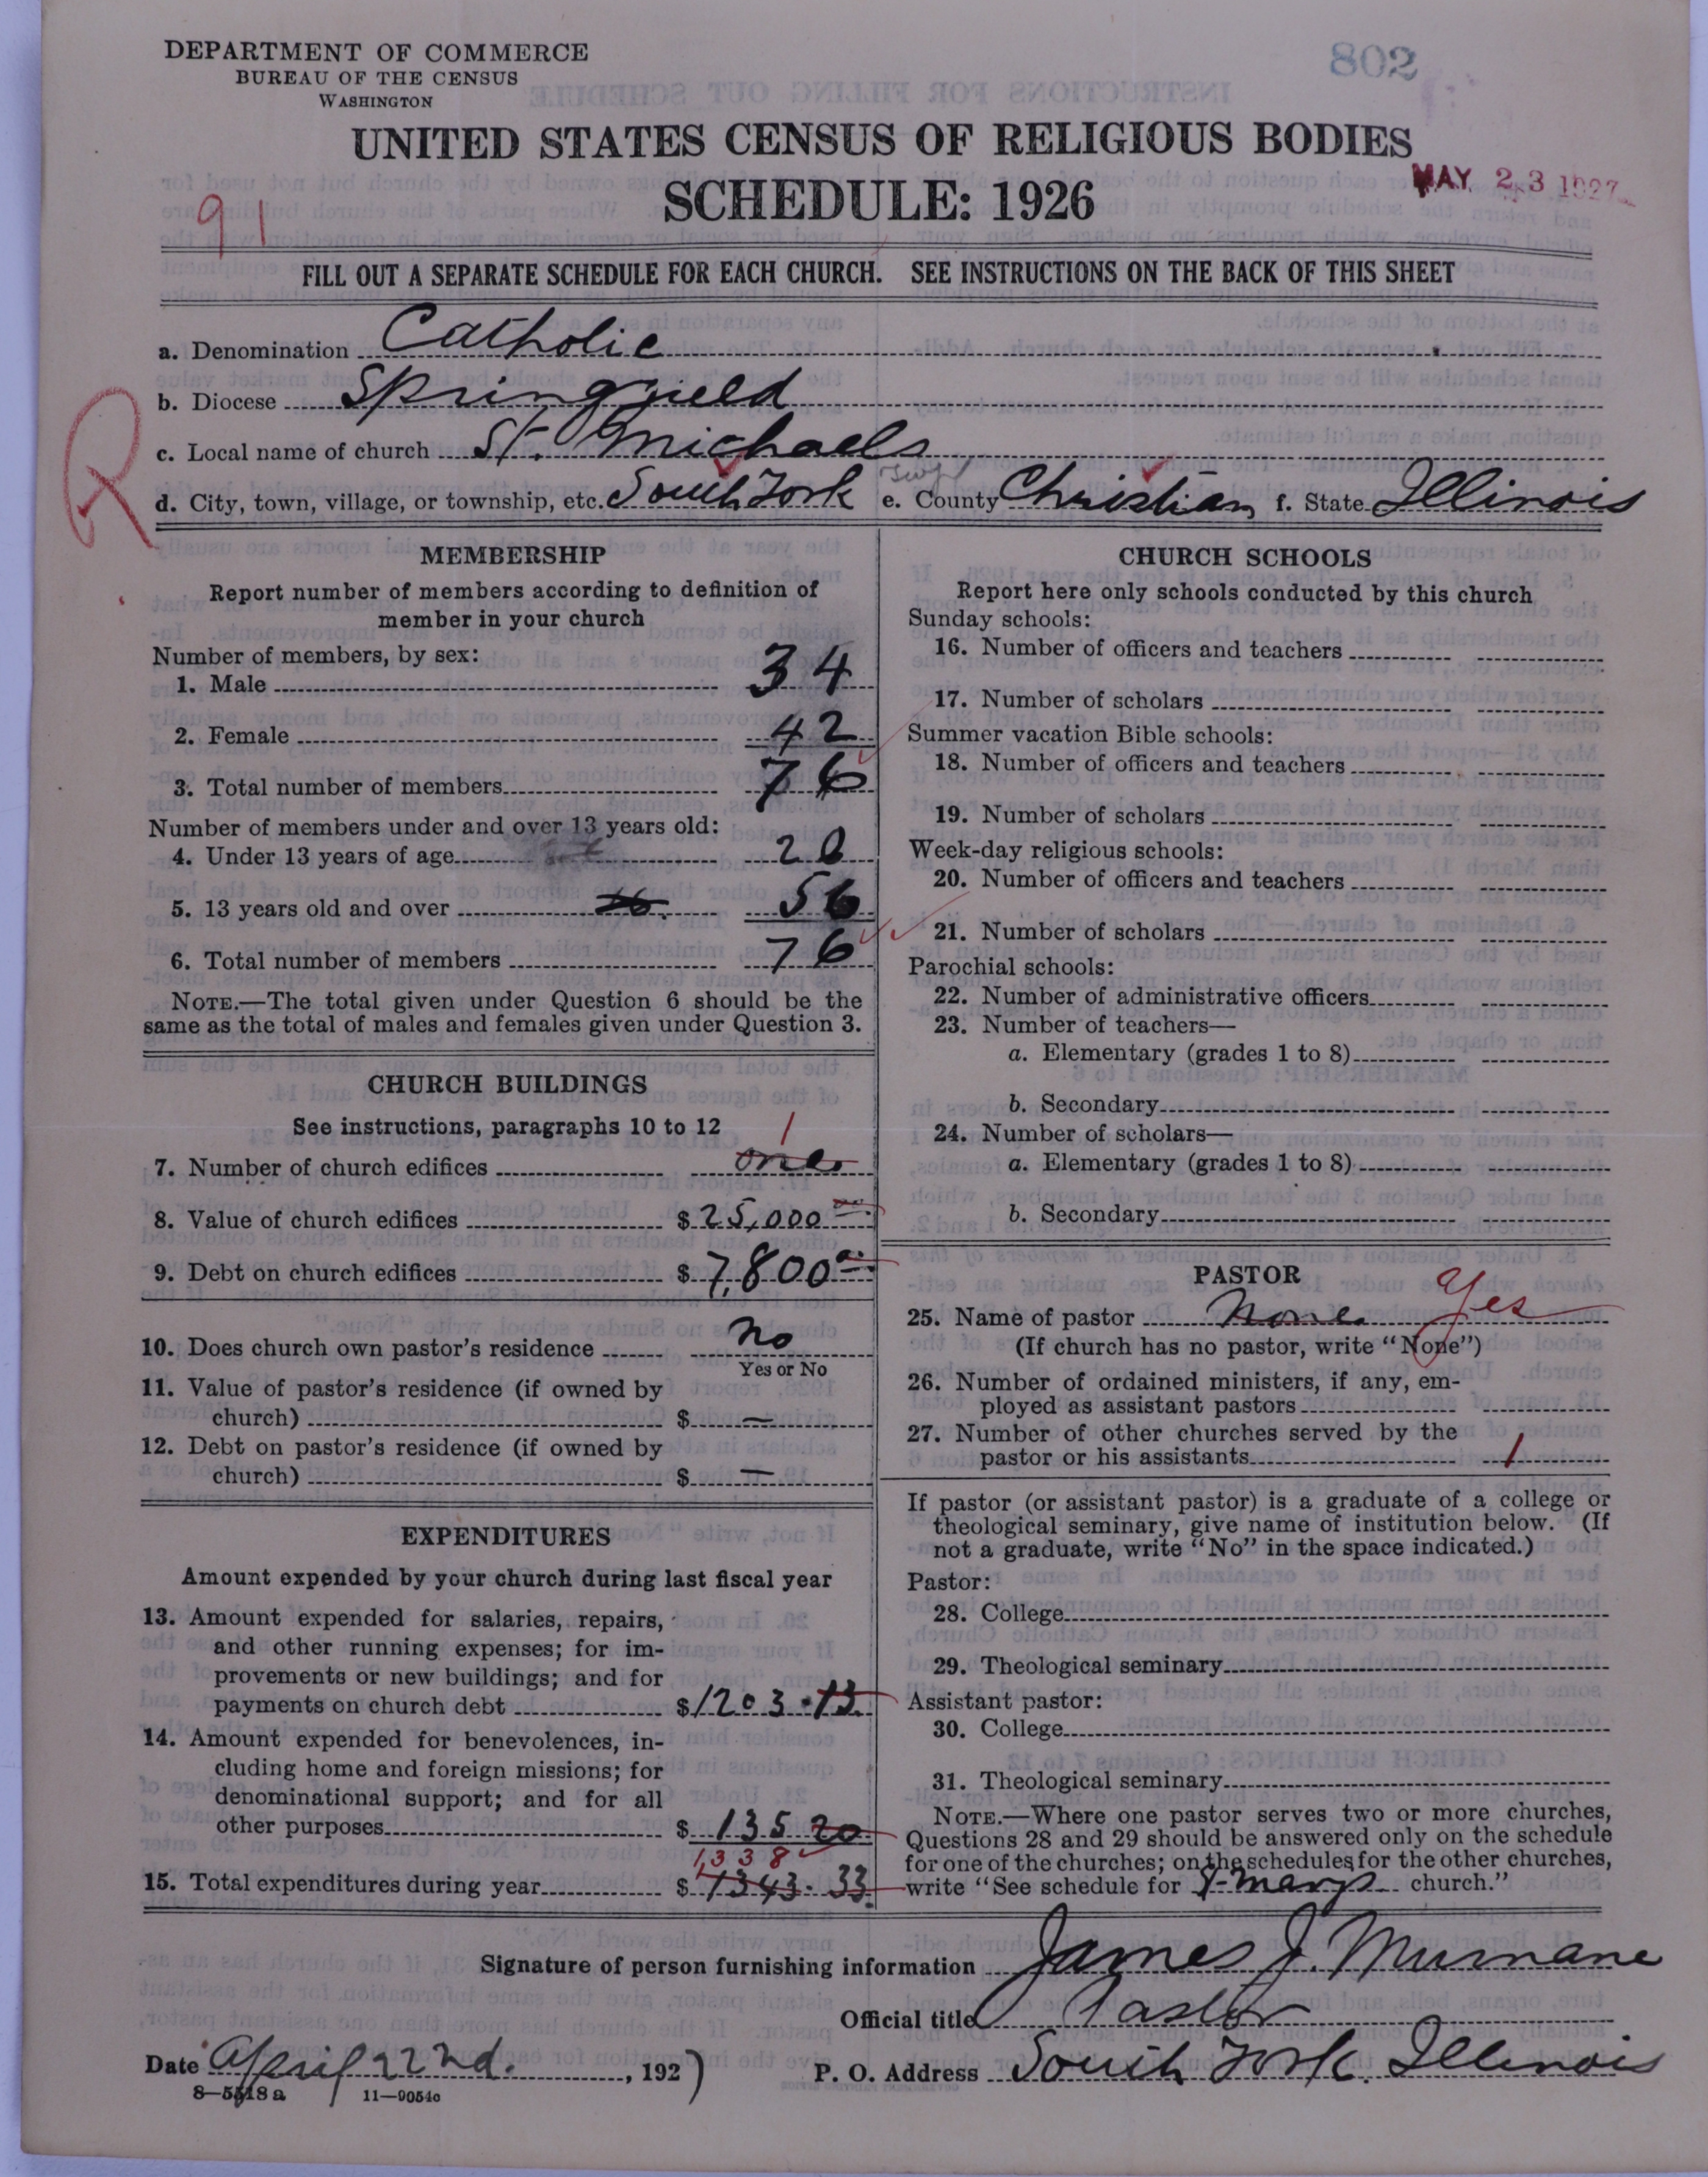 DEPARTMENT OF COMMERCE
BUREAU OF THE CENSUS
WASHINGTON
802
UNITED STATES CENSUS OF RELIGIOUS BODIES
SCHEDULE: 1926
MAY 23 1927
91
FILL OUT A SEPARATE SCHEDULE FOR EACH CHURCH. SEE INSTRUCTIONS ON THE BACK OF THIS SHEET
a. Denomination Catholic
b. Diocese Springfield
R
c. Local name of church St. Michaels
d. City, town, village, or township, etc. South Fork Twp e. County Christian f. State Illinois
MEMBERSHIP
Report number of members according to definition of
member in your church
Number of members, by sex:
1. Male 34
2. Female 42
3. Total number of members 76
Number of members under and over 13 years old:
4. Under 13 years of age 20
5. 13 years old and over 56
6. Total number of members 76
NOTE.—The total given under Question 6 should be the
same as the total of males and females given under Question 3.
CHURCH BUILDINGS
See instructions, paragraphs 10 to 12
1
7. Number of church edifices one
8. Value of church edifices $25,000
9. Debt on church edifices $7,800
10. Does church own pastor's residence no
Yes or No
11. Value of pastor's residence (if owned by
church) $ —
12. Debt on pastor's residence (if owned by
church) $ —
EXPENDITURES
Amount expended by your church during last fiscal year
13. Amount expended for salaries, repairs,
and other running expenses; for im-
provements or new buildings; and for
payments on church debt $1203.13
14. Amount expended for benevolences, in-
cluding home and foreign missions; for
denominational support; and for all
other purposes $ 135 20
1,338
15. Total expenditures during year $ 1343.33
CHURCH SCHOOLS
Report here only schools conducted by this church
Sunday schools:
16. Number of officers and teachers
17. Number of scholars
Summer vacation Bible schools:
18. Number of officers and teachers
19. Number of scholars
Week-day religious schools:
20. Number of officers and teachers
21. Number of scholars
Parochial schools:
22. Number of administrative officers
23. Number of teachers—
a. Elementary (grades 1 to 8)
b. Secondary
24. Number of scholars—
a. Elementary (grades 1 to 8)
b. Secondary
PASTOR
25. Name of pastor None Yes
(If church has no pastor, write "None")
26. Number of ordained ministers, if any, em-
ployed as assistant pastors
27. Number of other churches served by the
pastor or his assistants 1
If pastor (or assistant pastor) is a graduate of a college or
theological seminary, give name of institution below. (If
not a graduate, write "No" in the space indicated.)
Pastor:
28. College
29. Theological seminary
Assistant pastor:
30. College
31. Theological seminary
NOTE.—Where one pastor serves two or more churches,
Questions 28 and 29 should be answered only on the schedule
for one of the churches; on the schedules for the other churches,
write "See schedule for St. Marys church."
Signature of person furnishing information James J. Murnane
Official title Pastor
Date April 22nd. , 1927 P. O. Address South Fork, Illinois
8—5518a 11—9054c